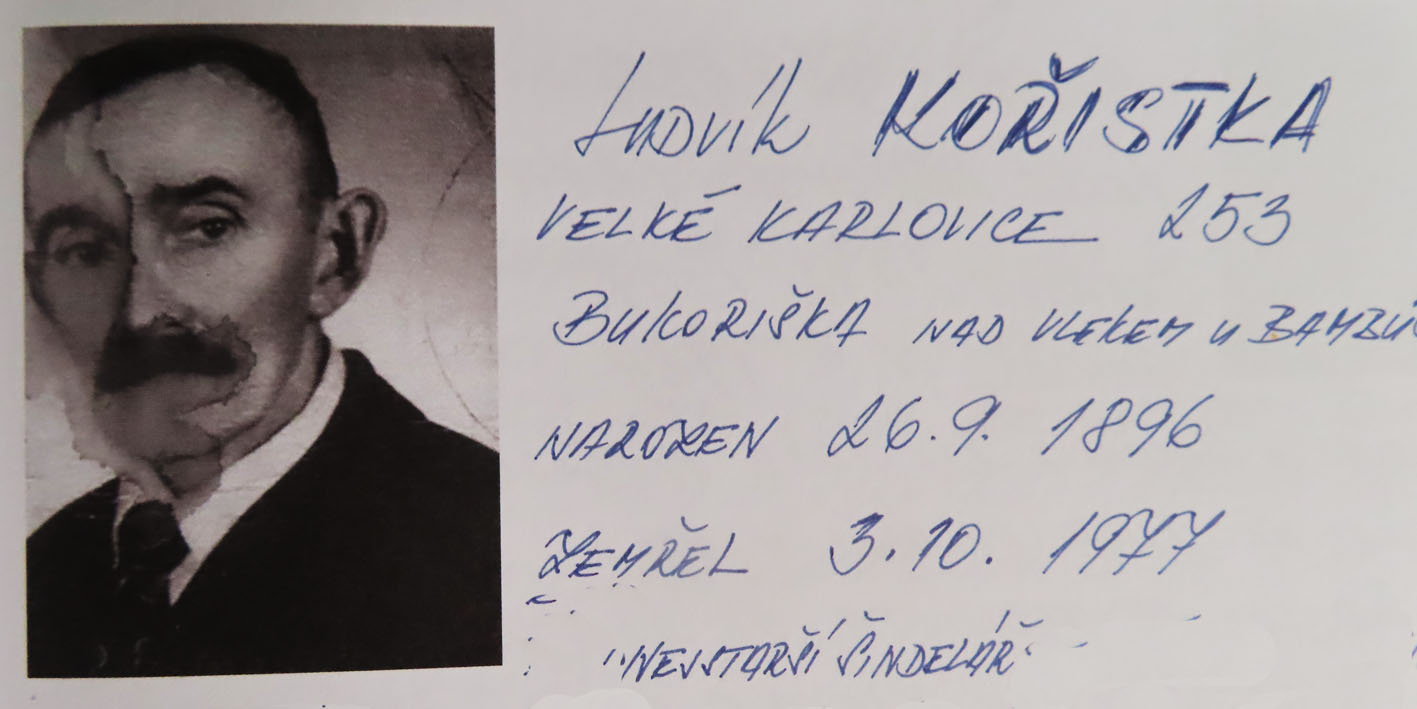 Ludvík KOŘISTKA
VELKÉ KARLOVICE 253
BUKORIŠKA NAD VLEKEM U BAMBU
NAROZEN 26.9. 1896
ZEMŘEL 3.10. 1977
"NEJSTARŠÍ ŠINDELÁŘ"